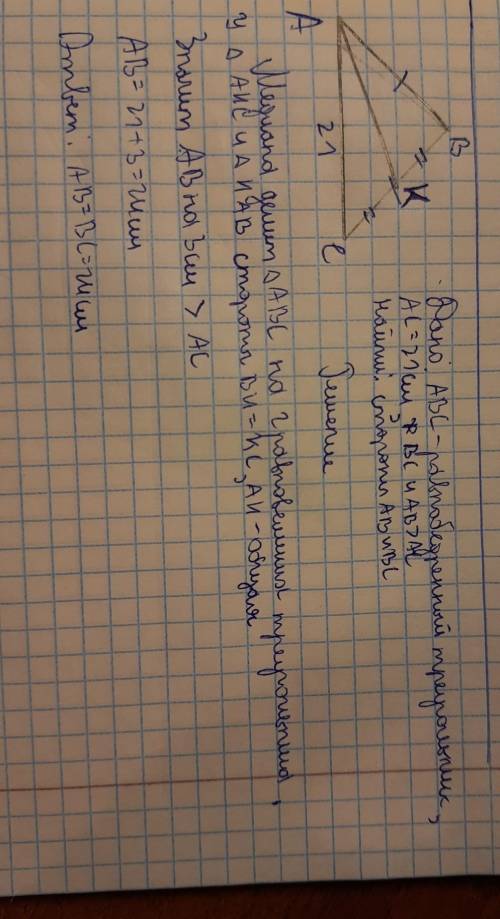 B
K
A
21
C
Дано: ABC-равнобедренный треугольник,
AC=21см, BC и AB>AC
Найти: стороны AB и BC
Решение
Медиана делит △ABC на 2 равновеликих треугольника,
у △AKC и △KAB стороны BK=KC, AK-общая
Значит AB на 3см > AC
AB=21+3=24см
Ответ: AB=BC=24см